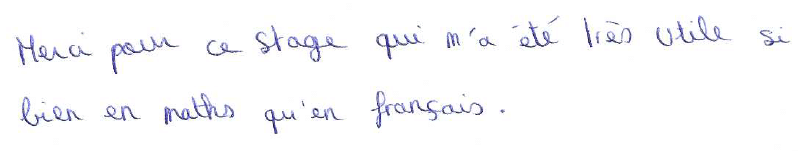 Merci pour ce stage qui m'a été très utile si
bien en maths qu'en français.